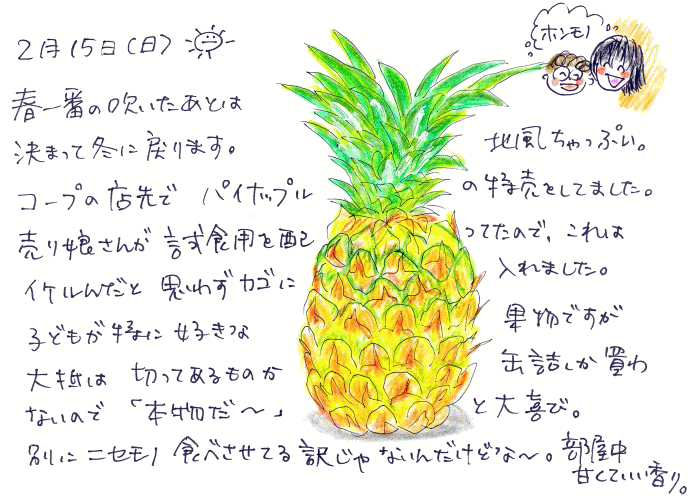 2月15日(日)
ホンモノ
春一番の吹いたあとは
決まって冬に戻ります。 北風ちゃっぷい。
コープの店先で パイナップル の特売をしてました。
売り娘さんが 試食用を配 ってたので、これは
イケルんだと 思わずカゴに 入れました。
子どもが特に好きな 果物ですが
大抵は 切ってあるものか 缶詰しか買わ
ないので 「本物だ〜」 と大喜び。
別にニセモノ食べさせてる訳じゃないんだけどな〜。部屋中
甘くていい香り。